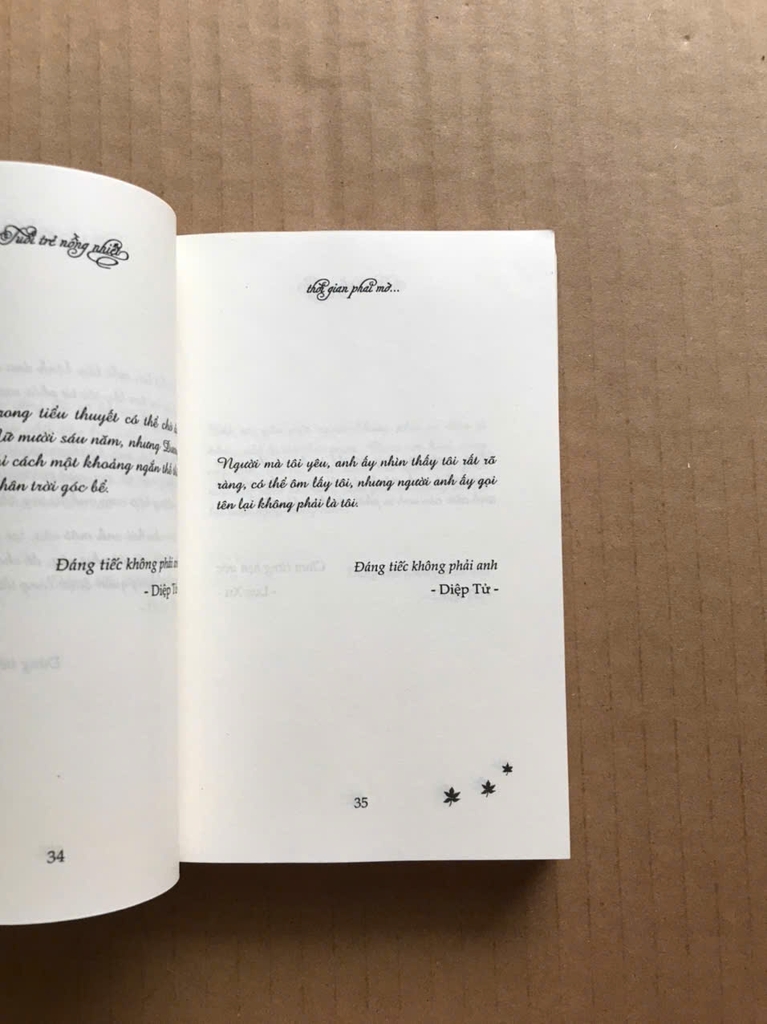 Tuổi trẻ nồng nhiệt
trong tiểu thuyết có thể chờ
mười sáu năm, nhưng
cách một khoảng ngắn thế
chân trời góc bể.
Đáng tiếc không phải
- Diệp Tử
34
thời gian phai mờ...
Người mà tôi yêu, anh ấy nhìn thấy tôi rất rõ
ràng, có thể ôm lấy tôi, nhưng người anh ấy gọi
tên lại không phải là tôi.
Đáng tiếc không phải anh
- Diệp Tử -
35